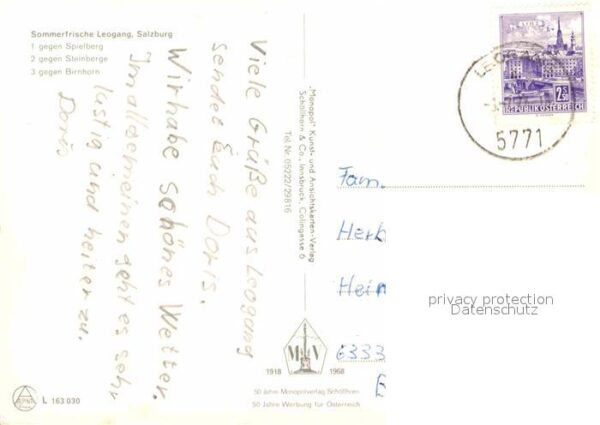 Sommerfrische Leogang, Salzburg
1 gegen Spielberg
2 gegen Steinberge
3 gegen Birnhorn
Viele Grüße aus Leogang
sendet Euch Doris.
Wir habe schönes Wetter.
Im allgemeinen geht es sehr
lustig und heiter zu.
Doris
„Monopol" Kunst- und Ansichtskarten-Verlag
Schöllhorn & Co., Innsbruck, Colingasse 6
Tel Nr. 05222/29816
REPUBLIK ÖSTERREICH
5771
Fam.
Herb
Hein
6333
privacy protection
Datenschutz
M V
1918 1968
50 Jahre Monopolverlag Schöllhorn
50 Jahre Werbung für Österreich
L 163 030